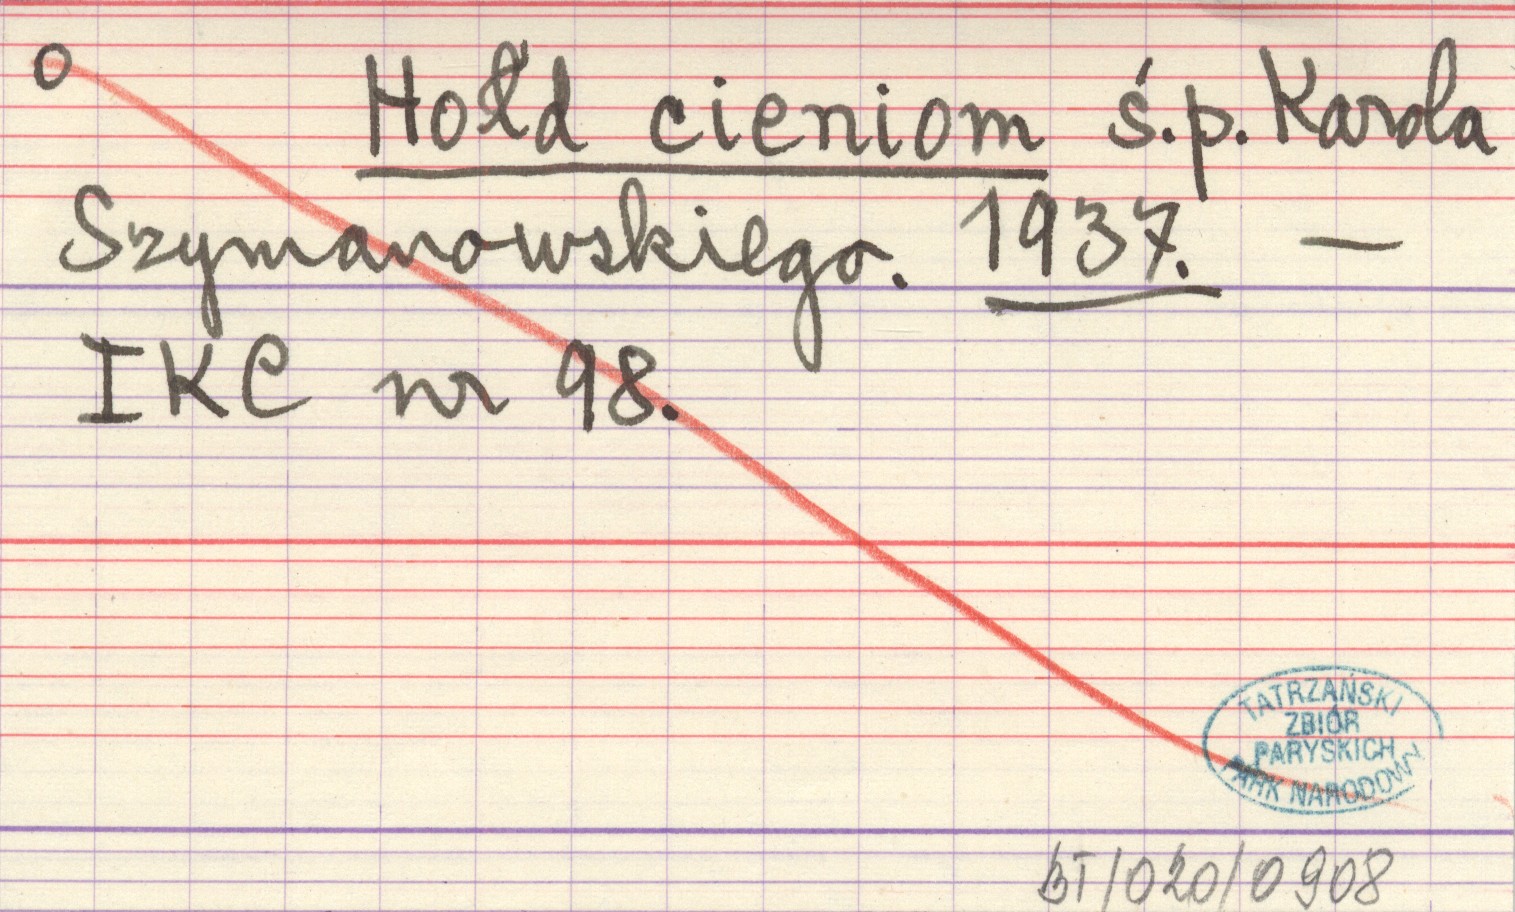 o Hołd cieniom ś.p. Karola
Szymanowskiego. 1937. —
IKC nr 98.
TATRZAŃSKI
ZBIÓR
PARYSKICH
PARK NARODOWY
BT/020/0908